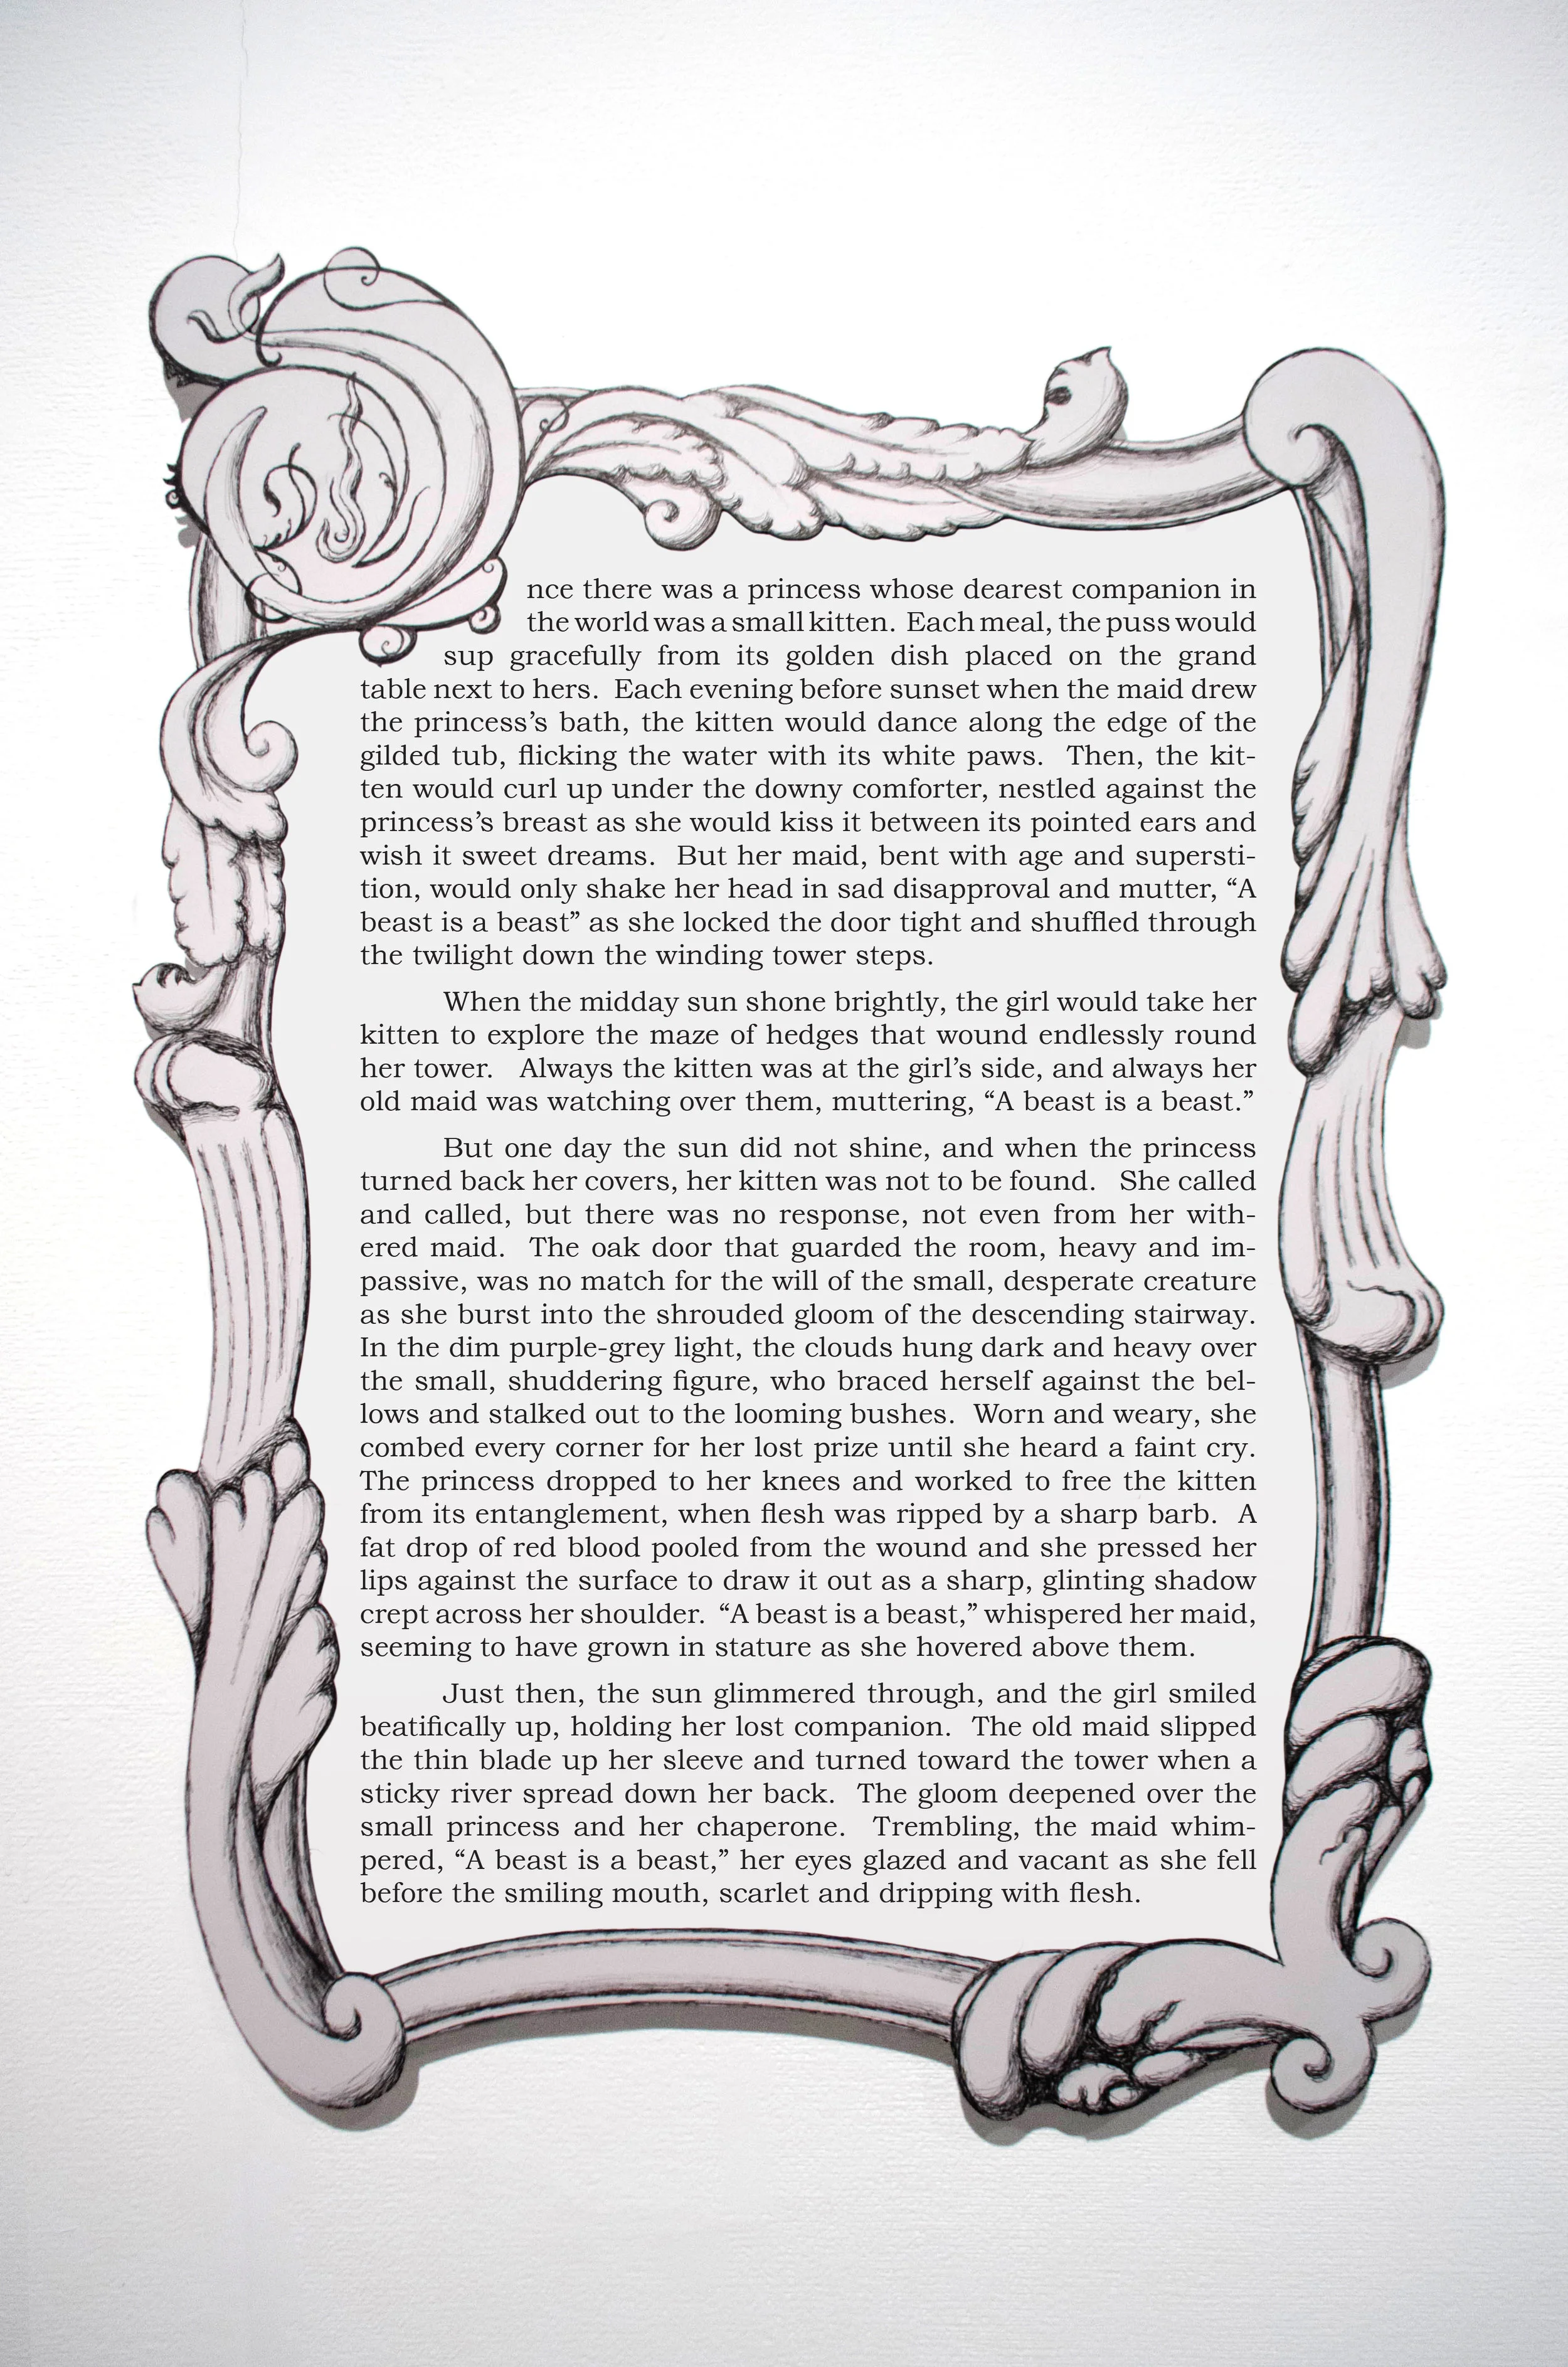 Once there was a princess whose dearest companion in
the world was a small kitten. Each meal, the puss would
sup gracefully from its golden dish placed on the grand
table next to hers. Each evening before sunset when the maid drew
the princess’s bath, the kitten would dance along the edge of the
gilded tub, flicking the water with its white paws. Then, the kit-
ten would curl up under the downy comforter, nestled against the
princess’s breast as she would kiss it between its pointed ears and
wish it sweet dreams. But her maid, bent with age and supersti-
tion, would only shake her head in sad disapproval and mutter, “A
beast is a beast” as she locked the door tight and shuffled through
the twilight down the winding tower steps.
When the midday sun shone brightly, the girl would take her
kitten to explore the maze of hedges that wound endlessly round
her tower. Always the kitten was at the girl’s side, and always her
old maid was watching over them, muttering, “A beast is a beast.”
But one day the sun did not shine, and when the princess
turned back her covers, her kitten was not to be found. She called
and called, but there was no response, not even from her with-
ered maid. The oak door that guarded the room, heavy and im-
passive, was no match for the will of the small, desperate creature
as she burst into the shrouded gloom of the descending stairway.
In the dim purple-grey light, the clouds hung dark and heavy over
the small, shuddering figure, who braced herself against the bel-
lows and stalked out to the looming bushes. Worn and weary, she
combed every corner for her lost prize until she heard a faint cry.
The princess dropped to her knees and worked to free the kitten
from its entanglement, when flesh was ripped by a sharp barb. A
fat drop of red blood pooled from the wound and she pressed her
lips against the surface to draw it out as a sharp, glinting shadow
crept across her shoulder. “A beast is a beast,” whispered her maid,
seeming to have grown in stature as she hovered above them.
Just then, the sun glimmered through, and the girl smiled
beatifically up, holding her lost companion. The old maid slipped
the thin blade up her sleeve and turned toward the tower when a
sticky river spread down her back. The gloom deepened over the
small princess and her chaperone. Trembling, the maid whim-
pered, “A beast is a beast,” her eyes glazed and vacant as she fell
before the smiling mouth, scarlet and dripping with flesh.